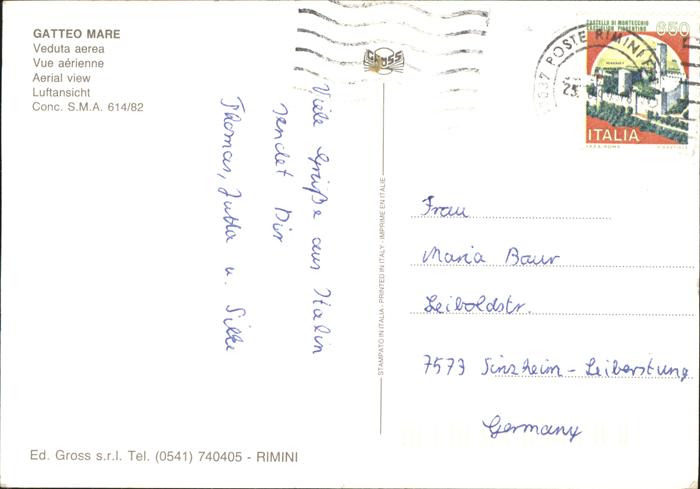 GATTEO MARE
Veduta aerea
Vue aérienne
Aerial view
Luftansicht
Conc. S.M.A. 614/82
GROSS
CASTELLO DI MONTECCHIO
CASTIGLION FIORENTINO
650
ITALIA
I.P.Z.S. ROMA
POSTE RIMINI
Viele Grüße aus Italin
sendet Dir
Thomas, Jutta u. Silke
STAMPATO IN ITALIA - PRINTED IN ITALY - IMPRIME EN ITALIE
Frau
Maria Baur
Leiboldstr.
7573 Sinzheim - Leiberstung
Germany
Ed. Gross s.r.l. Tel. (0541) 740405 - RIMINI